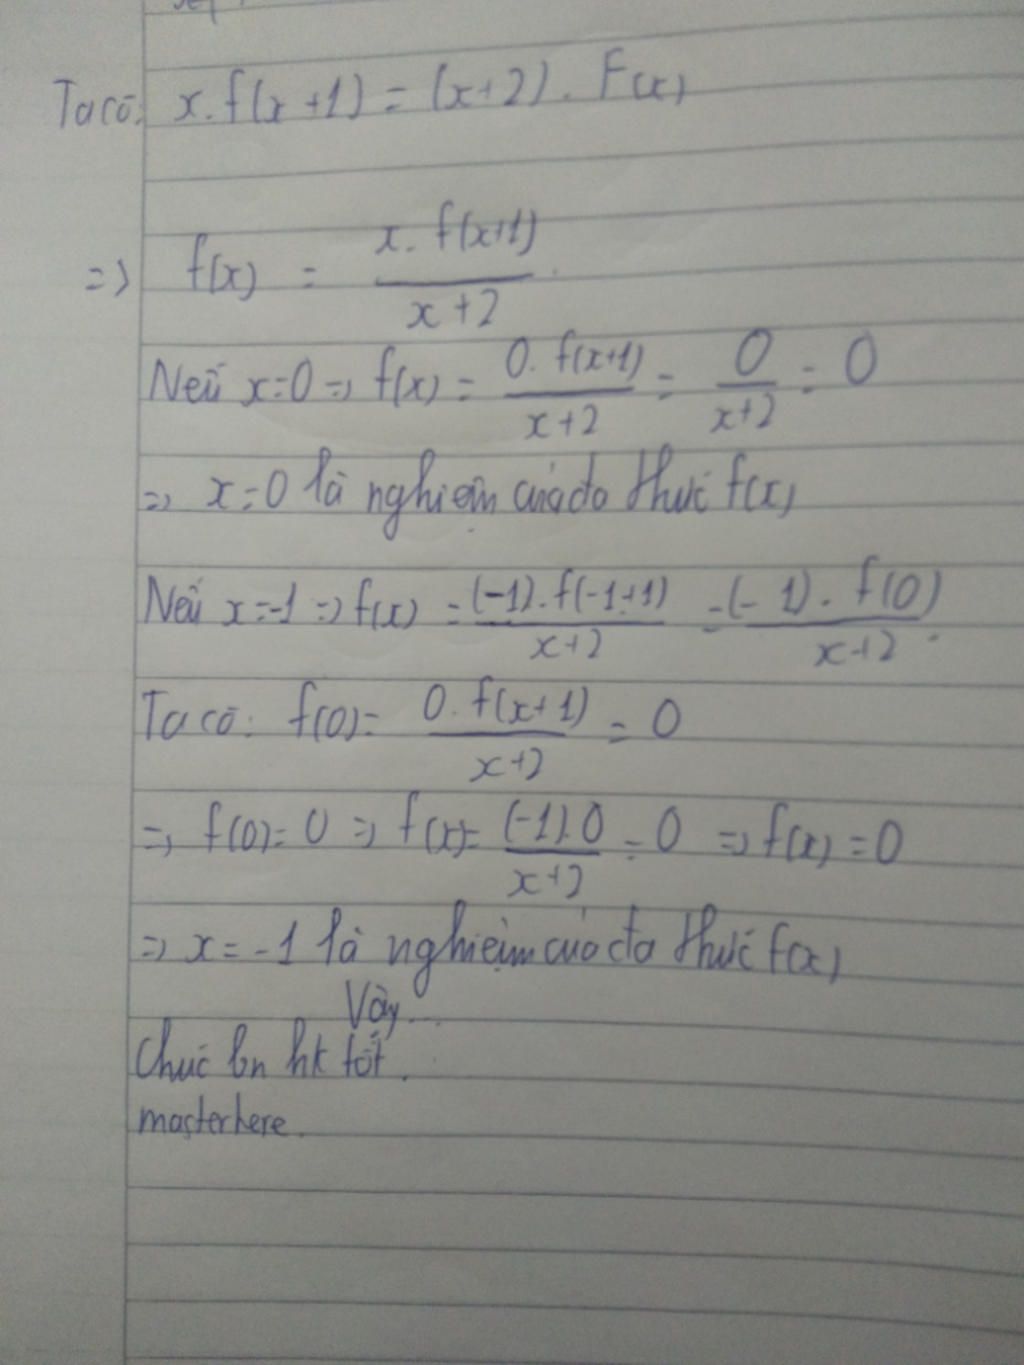 Ta có: x.f(x+1) = (x+2). F(x)
=> f(x) = x. f(x+1) / x+2
Nếu x=0 => f(x) = 0. f(x+1) / x+2 = 0 / x+2 = 0
=> x=0 là nghiệm của đa thức f(x)
Nếu x=-1 => f(x) = (-1).f(-1+1) / x+2 = (-1). f(0) / x+2.
Ta có: f(0) = 0. f(x+1) / x+2 = 0
=> f(0)= 0 => f(x)= (-1).0 / x+2 = 0 => f(x) = 0
=> x = -1 là nghiệm của đa thức f(x)
Vậy...
Chúc bn hk tốt.
masterhere.